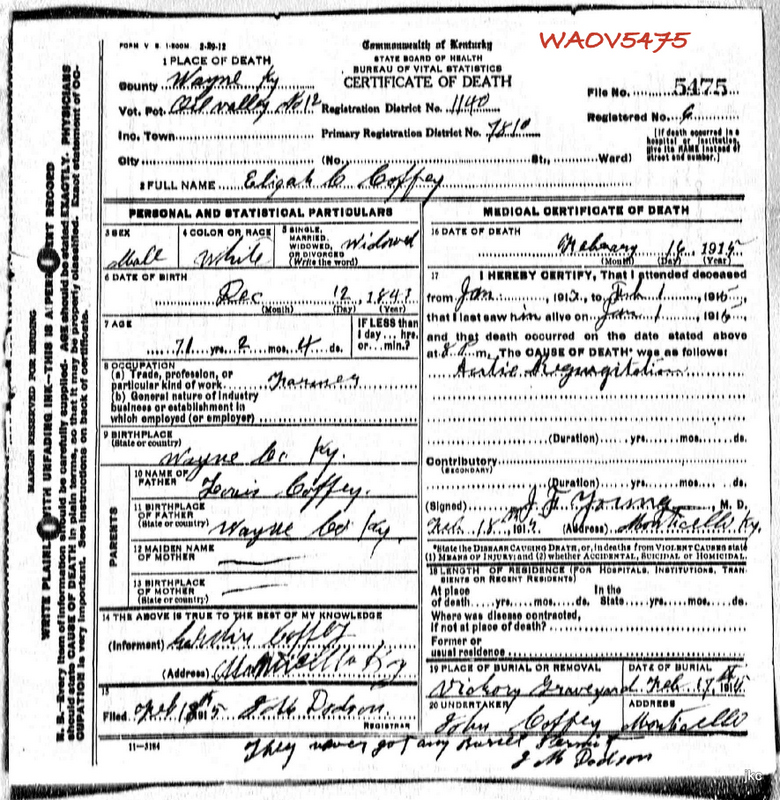 FORM V. S. 1-500M 2-29-12
Commonwealth of Kentucky
WAOV5475
1 PLACE OF DEATH
STATE BOARD OF HEALTH
BUREAU OF VITAL STATISTICS
CERTIFICATE OF DEATH
County Wayne Ky
File No. 5475
Vot. Pct. No 12 Registration District No. 1140
Registered No. 6
Inc. Town Primary Registration District No. 7810
[If death occurred in a hospital or institution, give its NAME instead of street and number.]
City (No. St., Ward)
2 FULL NAME Eligah C Coffey
PERSONAL AND STATISTICAL PARTICULARS
3 SEX
Mall
4 COLOR OR RACE
White
5 SINGLE, MARRIED, WIDOWED, OR DIVORCED (Write the word)
Widowed
6 DATE OF BIRTH
Dec 12, 1843
(Month) (Day) (Year)
7 AGE
71 yrs. 2 mos. 4 ds.
IF LESS than
1 day... hrs.
or... min.?
8 OCCUPATION
(a) Trade, profession, or
particular kind of work Farmer
(b) General nature of industry
business or establishment in
which employed (or employer)
9 BIRTHPLACE
(State or country)
Wayne Co. Ky.
PARENTS
10 NAME OF FATHER
Louis Coffey.
11 BIRTHPLACE OF FATHER
(State or country)
Wayne Co Ky.
12 MAIDEN NAME OF MOTHER
13 BIRTHPLACE OF MOTHER
(State or country)
14 THE ABOVE IS TRUE TO THE BEST OF MY KNOWLEDGE
(Informant) Coffey
(Address) Monticello Ky
15
Filed Feb 18th 1915 J M Dodson
REGISTRAR
11-3184
MEDICAL CERTIFICATE OF DEATH
16 DATE OF DEATH
February 16, 1915
(Month) (Day) (Year)
17 I HEREBY CERTIFY, That I attended deceased
from Jan, 191, to Feb 1, 1915,
that I last saw him alive on Jan 1, 1915,
and that death occurred on the date stated above
at 8 m. The CAUSE OF DEATH* was as follows:
Aortic Regurgitation
(Duration) yrs. mos. ds.
Contributory
(SECONDARY)
(Duration) yrs. mos. ds.
(Signed) J F Young, M. D.
Feb. 18th 191 (Address) Monticello Ky.
*State the DISEASE CAUSING DEATH, or, in deaths from VIOLENT CAUSES state
(1) MEANS OF INJURY; and (2) whether ACCIDENTAL, SUICIDAL or HOMICIDAL.
18 LENGTH OF RESIDENCE (FOR HOSPITALS, INSTITUTIONS, TRANSIENTS OR RECENT RESIDENTS)
At place In the
of death yrs. mos. ds. State yrs. mos. ds.
Where was disease contracted,
if not at place of death?
Former or
usual residence
19 PLACE OF BURIAL OR REMOVAL
Vickory Graveyard
DATE OF BURIAL
Feb. 17th 1915
20 UNDERTAKER
John Coffey
ADDRESS
Monticello
They never got any burial permit
J M Dodson
jkc
MARGIN RESERVED FOR BINDING
WRITE PLAINLY WITH UNFADING INK—THIS IS A PERMANENT RECORD
N. B.—Every item of information should be carefully supplied. AGE should be stated EXACTLY. PHYSICIANS
should state CAUSE OF DEATH in plain terms, so that it may be properly classified. Exact statement of OC-
CUPATION is very important. See instructions on back of certificate.